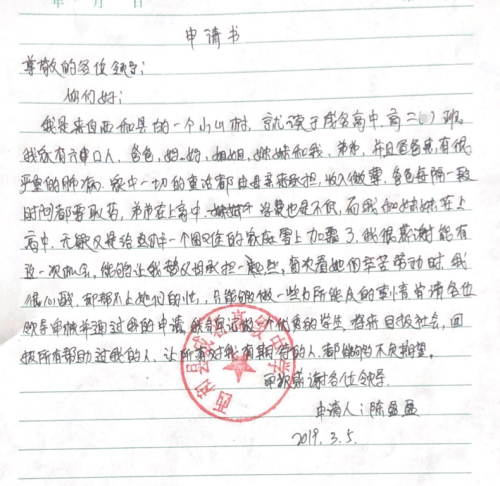 月 日
申请书
尊敬的各位领导:
你们好:
我是来自西和县的一个小山村,就读于成名高中,高二(1)班。
我家有六口人,爸爸,妈妈,姐姐,妹妹和我,弟弟,并且爸爸患有很
严重的肺病,家中一切的重活都由母亲来承担,收入微薄,爸爸每隔一段
时间都要取药,弟弟在上高中,花费也是不低,而我和妹妹在上
高中,无疑又是给这样一个困难的家庭雪上加霜了,我很感谢能有
这一次机会,能够让我替父母承担一些,每次看她们辛苦劳动时,我
很心酸,却帮不上她们的忙,只能够做一些力所能及的事情,望请各位
领导审核并通过我的申请,我会争做一个优秀的学生,将来回报社会,回
报所有帮助过我的人,让所有对我有期待的人,都能够不负期望。
再次感谢各位领导
申请人:陈盈盈
2019.3.5.
西和县成名高级中学